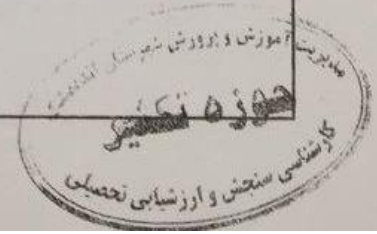 مدیریت آموزش و پرورش شهرستان
حوزه تکثیر
کارشناسی سنجش و ارزشیابی تحصیلی